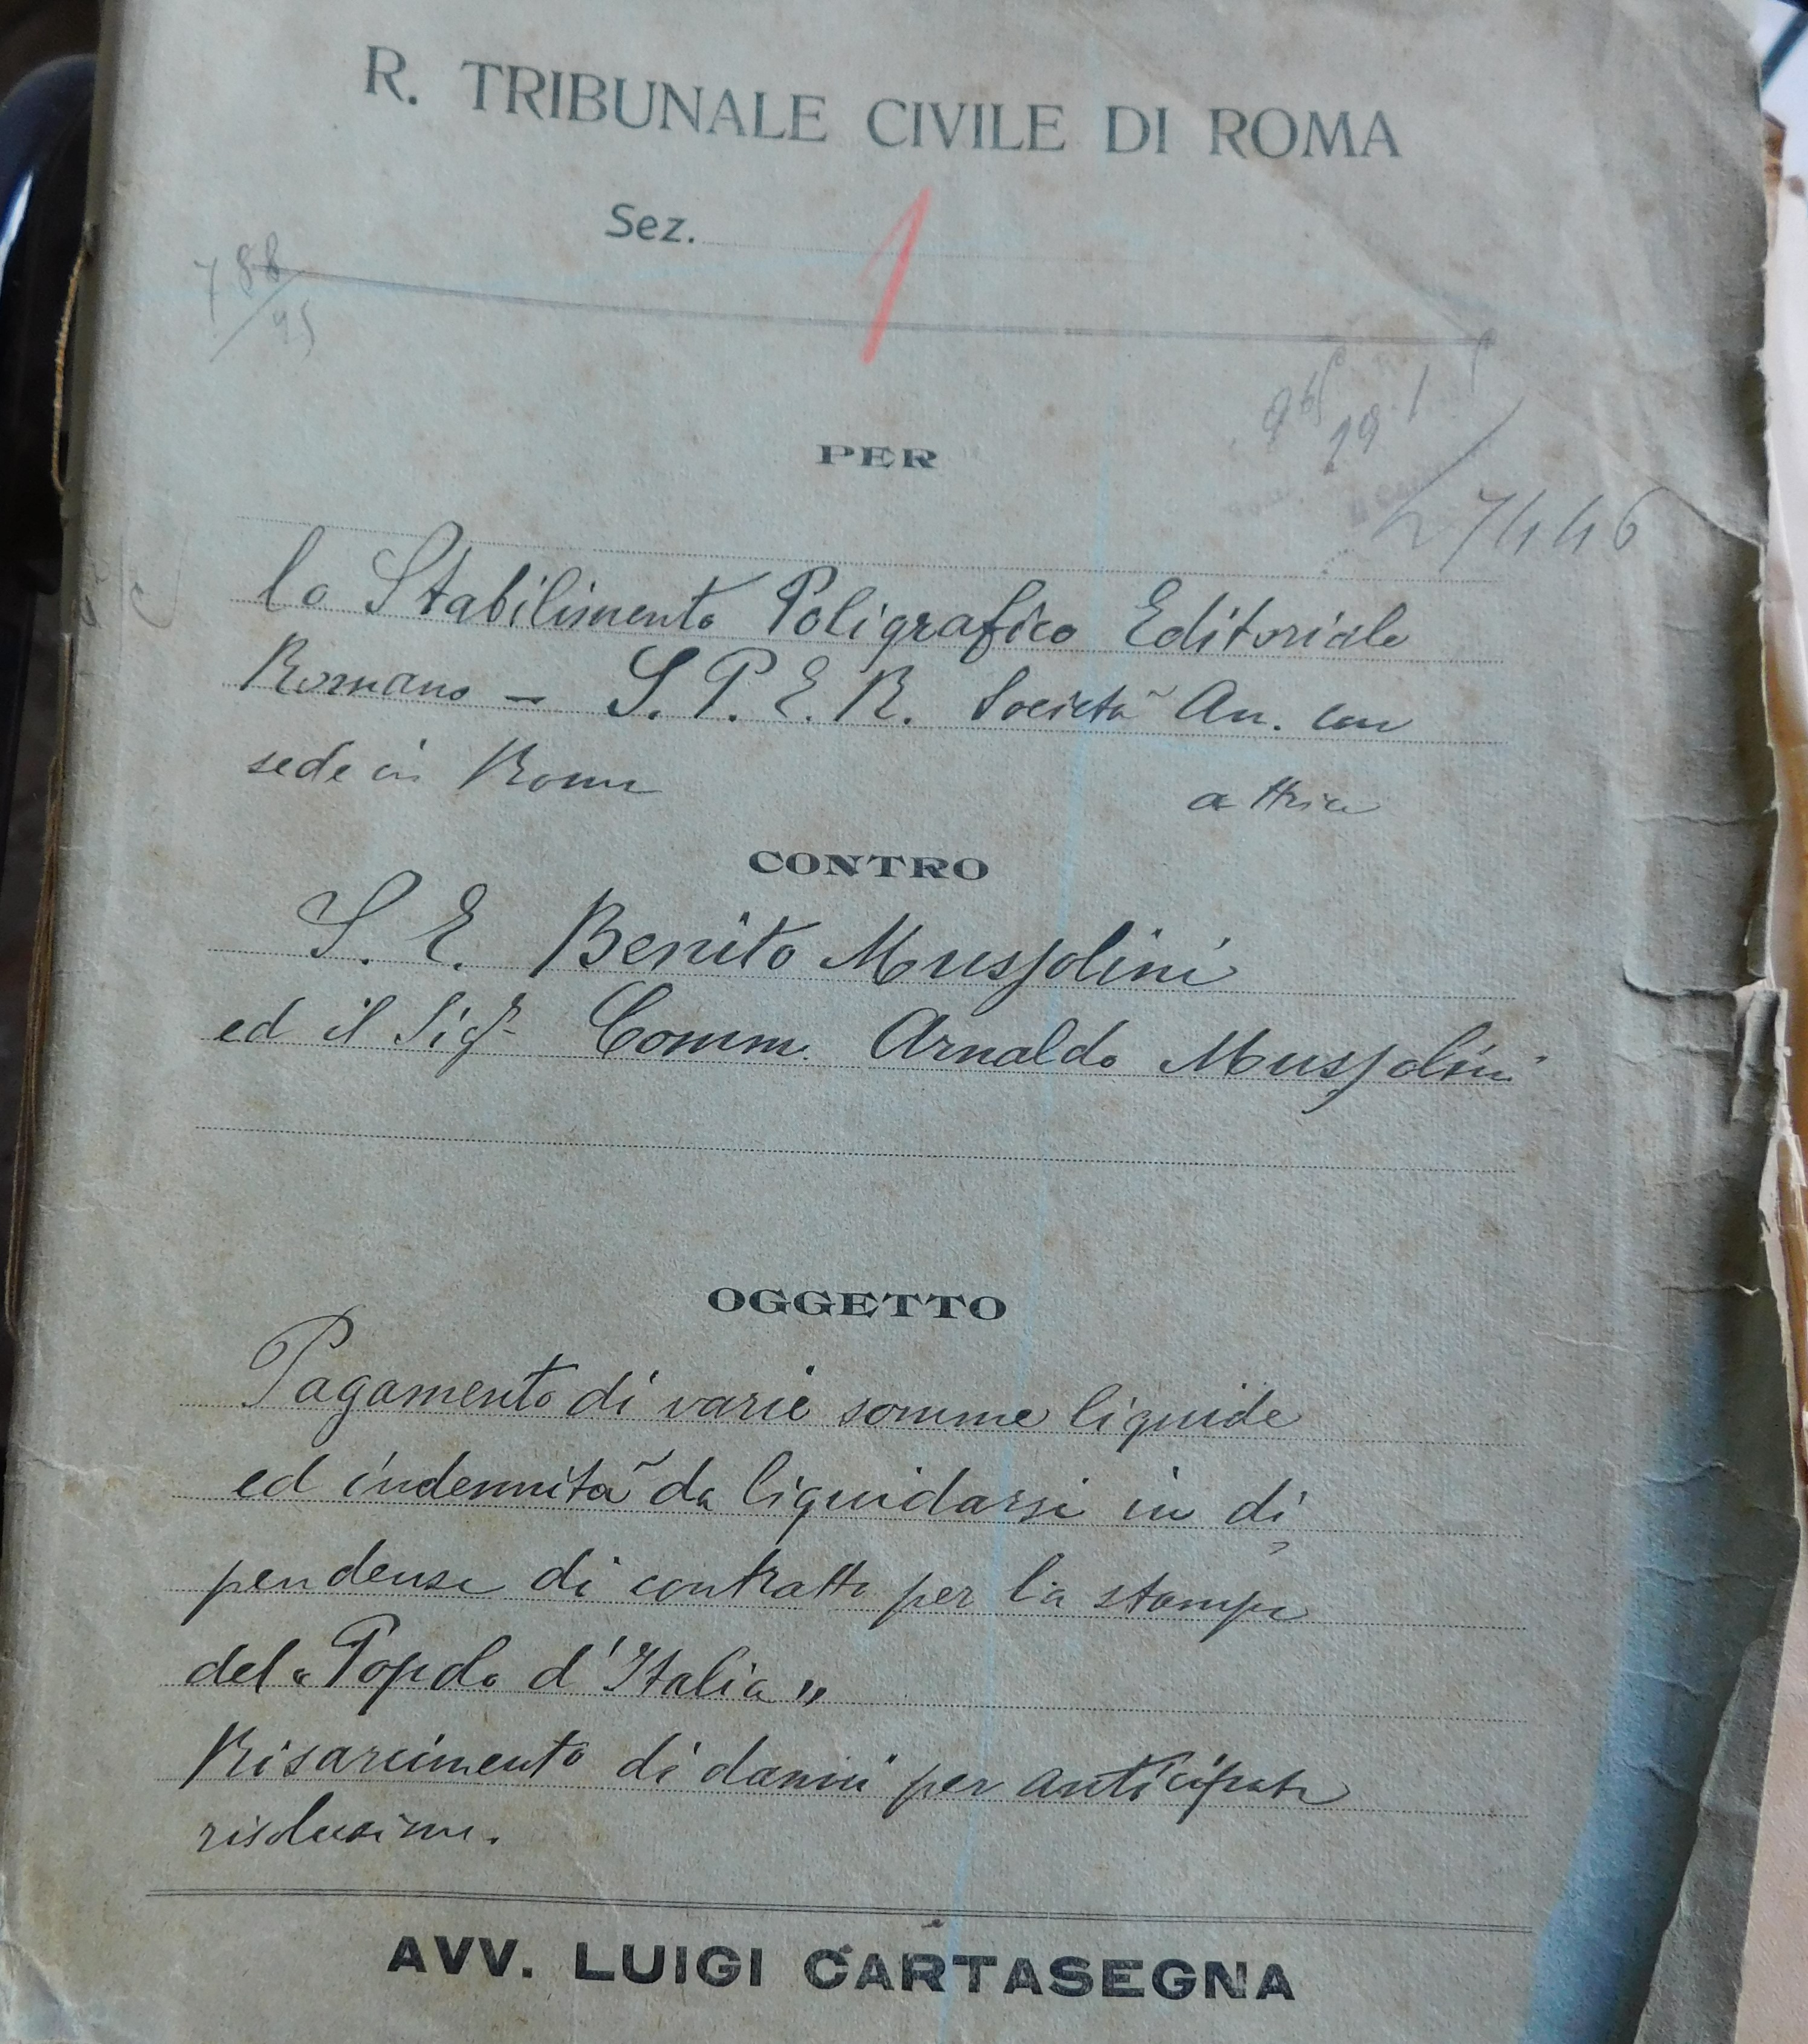 R. TRIBUNALE CIVILE DI ROMA
Sez. 1
788/45
27446
PER
lo Stabilimento Poligrafico Editoriale
Romano - S. P. E. R. Società An. con
sede in Roma attrice
CONTRO
S. E. Benito Mussolini
ed il Sigr Comm. Arnaldo Mussolini
OGGETTO
Pagamento di varie somme liquide
ed indennità da liquidarsi in di
pendenza di contratto per la stampa
del "Popolo d'Italia"
Risarcimento di danni per anticipata
risoluzione.
AVV. LUIGI CARTASEGNA